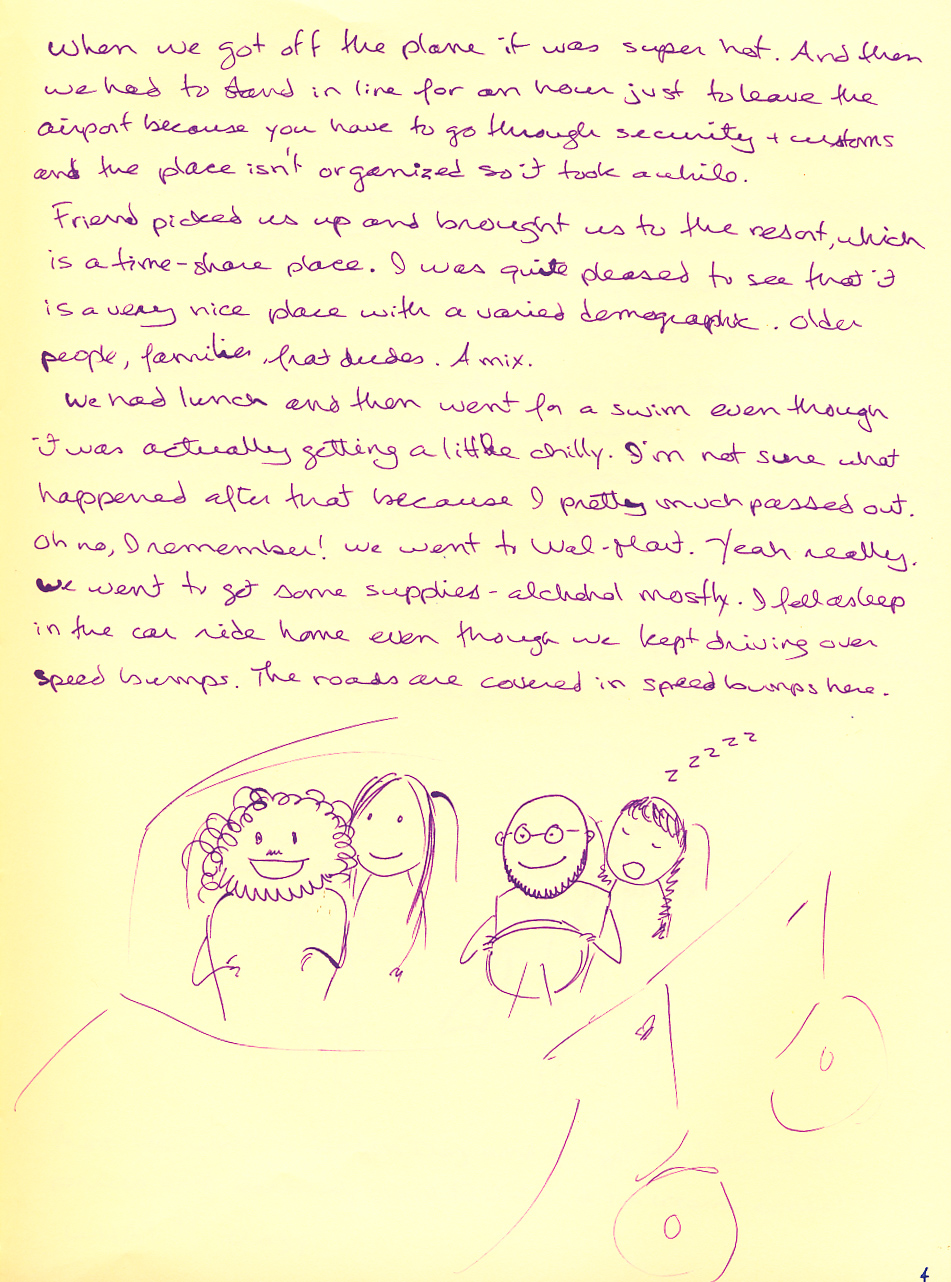 When we got off the plane it was super hot. And then
we had to stand in line for an hour just to leave the
airport because you have to go through security + customs
and the place isn't organized so it took awhile.
Friend picked us up and brought us to the resort, which
is a time-share place. I was quite pleased to see that it
is a very nice place with a varied demographic. Older
people, families, frat dudes. A mix.
We had lunch and then went for a swim even though
it was actually getting a little chilly. I'm not sure what
happened after that because I pretty much passed out.
Oh no, I remember! We went to Wal-Mart. Yeah really.
We went to get some supplies - alchohol mostly. I fell asleep
in the car ride home even though we kept driving over
speed bumps. The roads are covered in speed bumps here.
z z z z z
4